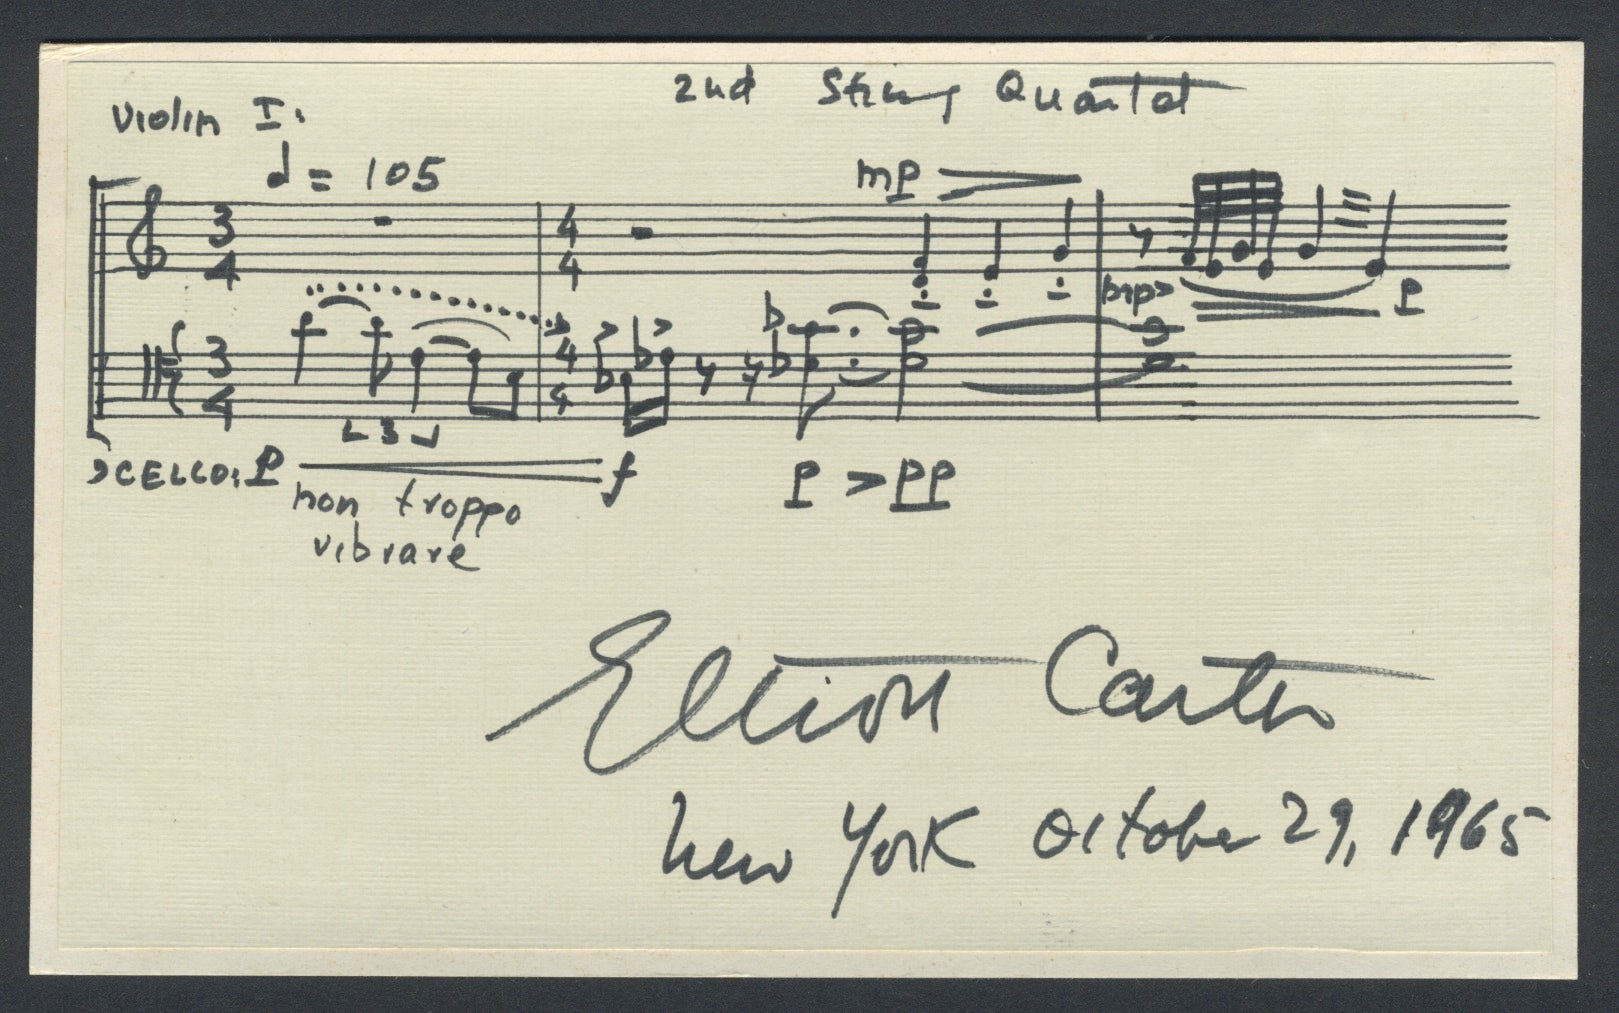 2nd String Quartet
Violin I.
= 105
mp
3 4
4 4
mp> P
3 4
4 4
3
CELLO: P f P > PP
non troppo
vibrare
Elliott Carter
New York October 29, 1965